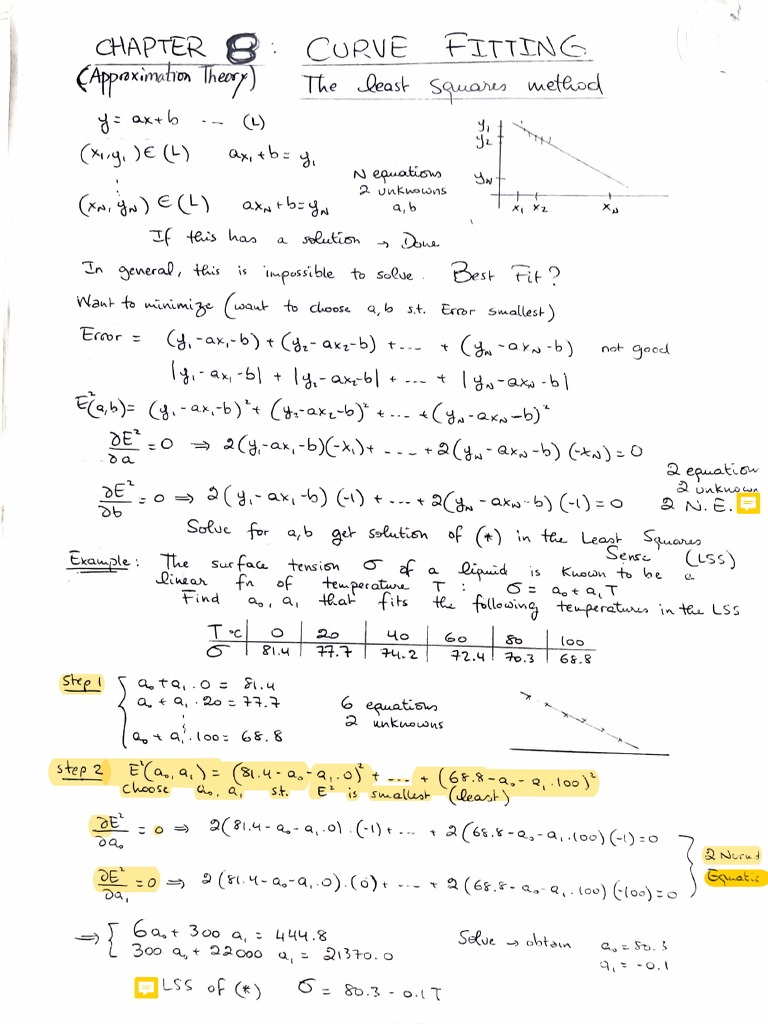 CHAPTER 8 : CURVE FITTING
(Approximation Theory) The least squares method
y = ax+b --- (L)
(x₁,y₁) ∈ (L) ax₁+b = y₁
⋮
(x_N, y_N) ∈ (L) ax_N+b = y_N
N equations
2 unknowns
a,b
y₁
y₂
y_N
x₁ x₂ x_N
If this has a solution → Done
In general, this is impossible to solve. Best Fit?
Want to minimize (want to choose a,b s.t. Error smallest)
Error = (y₁-ax₁-b) + (y₂-ax₂-b) +---- + (y_N-ax_N-b) not good
|y₁-ax₁-b| + |y₂-ax₂-b| + ---- + |y_N-ax_N-b|
E²(a,b) = (y₁-ax₁-b)² + (y₂-ax₂-b)² + ---- + (y_N-ax_N-b)²
∂E²/∂a = 0 ⇒ 2(y₁-ax₁-b)(-x₁)+ ---- +2(y_N-ax_N-b)(-x_N) = 0
∂E²/∂b = 0 ⇒ 2(y₁-ax₁-b)(-1) + ---- + 2(y_N-ax_N-b)(-1) = 0
2 equation
2 unknown
2 N.E.
Solve for a,b get solution of (*) in the Least Squares
Sense (LSS)
Example: The surface tension σ of a liquid is known to be a
linear fn of temperature T : σ = a₀ + a₁T
Find a₀, a₁ that fits the following temperatures in the LSS
T °C | 0 | 20 | 40 | 60 | 80 | 100
σ | 81.4 | 77.7 | 74.2 | 72.4 | 70.3 | 68.8
Step 1
a₀ + a₁.0 = 81.4
a₀ + a₁.20 = 77.7
⋮
a₀ + a₁.100 = 68.8
6 equations
2 unknowns
Step 2 E²(a₀,a₁) = (81.4-a₀-a₁.0)² + ---- + (68.8-a₀-a₁.100)²
choose a₀, a₁ s.t. E² is smallest (least)
∂E²/∂a₀ = 0 ⇒ 2(81.4-a₀-a₁.0).(-1)+ ---- + 2(68.8-a₀-a₁.100)(-1)=0
∂E²/∂a₁ = 0 ⇒ 2(81.4-a₀-a₁.0).(0)+ ---- + 2(68.8-a₀-a₁.100)(-100)=0
2 Normal
Equatio
⇒ { 6a₀ + 300 a₁ = 444.8
300 a₀ + 22000 a₁ = 21370.0
Solve → obtain a₀ = 80.3
a₁ = -0.1
LSS of (*) σ = 80.3 - 0.1T